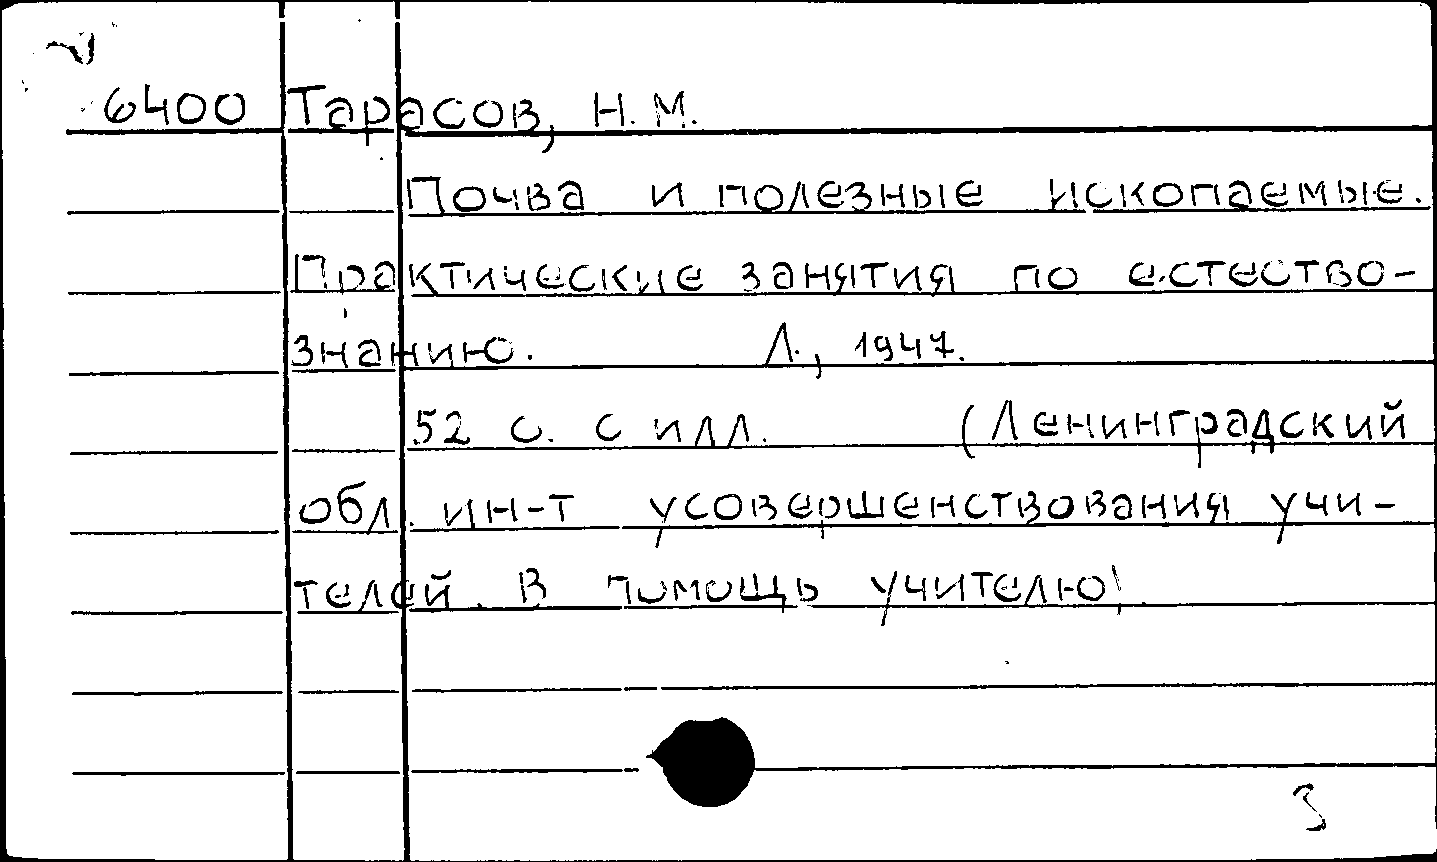 6400 Тарасов, Н. М.
Почва и полезные ископаемые.
Практические занятия по естество-
знанию. Л., 1947.
52 с. с илл. (Ленинградский
обл. ин-т усовершенствования учи-
телей. В помощь учителю)
3